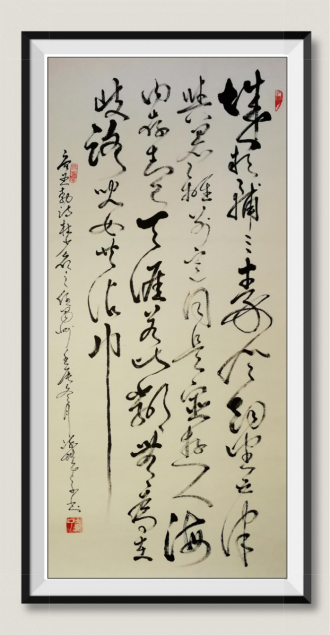 城阙辅三秦风烟望五津
與君離别意同是宦遊人海
内存知己天涯若比鄰無為在
歧路兒女共沾巾
王勃诗杜少府之任蜀州